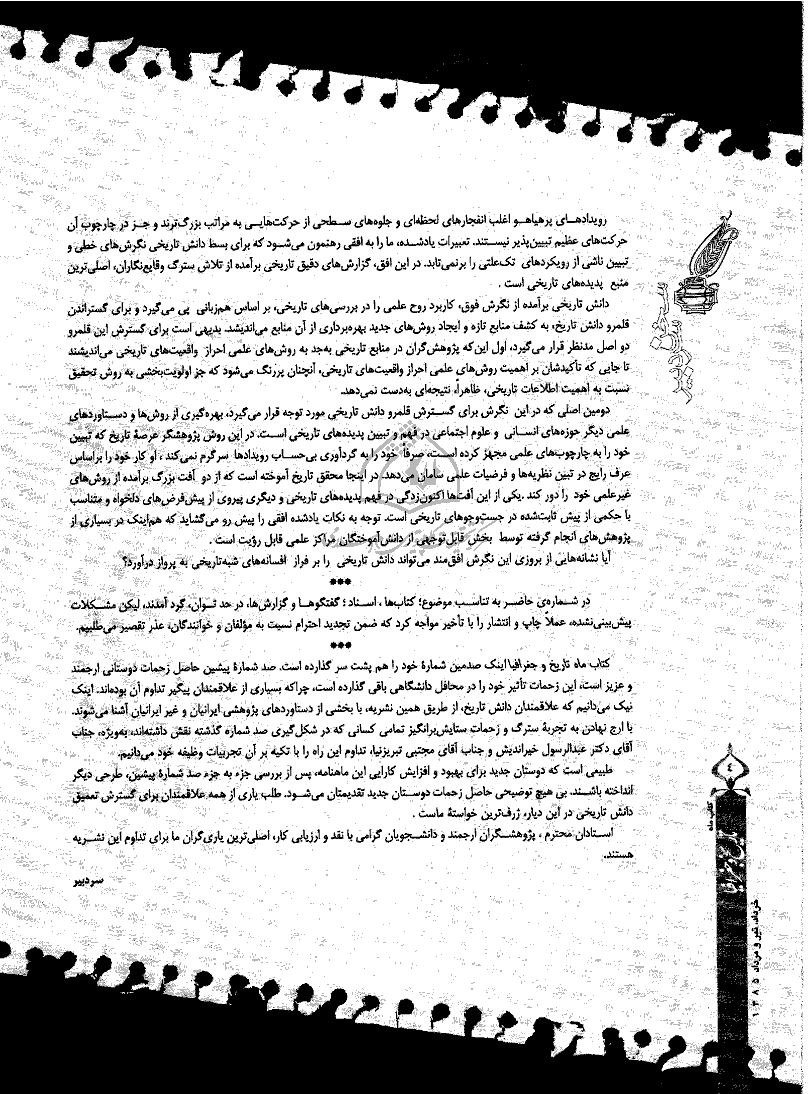 سخن سردبیر
رویدادهـای پرهیاهـو اغلب انفجارهای لحظه‌ای و جلوه‌های سـطحی از حرکت‌هایـی به مراتب بزرگ‌ترند و جـز در چارچوب آن
حرکت‌های عظیم تبیین‌پذیر نیسـتند. تعبیرات یادشـده، ما را به افقی رهنمون می‌شود که برای بسط دانش تاریخی نگرش‌های خطی و
تبیین ناشی از رویکردهای تک‌علتی را برنمی‌تابد. در این افق، گزارش‌های دقیق تاریخی برآمده از تلاش سترگ وقایع‌نگاران، اصلی‌ترین
منبع پدیده‌های تاریخی است .
دانش تاریخی برآمده از نگرش فوق، کاربرد روح علمی را در بررسی‌های تاریخی، بر اساس هم‌زبانی پی می‌گیرد و برای گستراندن
قلمرو دانش تاریخ، به کشف منابع تازه و ایجاد روش‌های جدید بهره‌برداری از آن منابع می‌اندیشد. بدیهی است برای گسترش این قلمرو
دو اصل مدنظر قرار می‌گیرد، اول این‌که پژوهش‌گران در منابع تاریخی به‌جد به روش‌های علمی احراز واقعیت‌های تاریخی می‌اندیشند
تا جایی که تأکیدشان بر اهمیت روش‌های علمی احراز واقعیت‌های تاریخی، آنچنان پررنگ می‌شود که جز اولویت‌بخشی به روش تحقیق
نسبت به اهمیت اطلاعات تاریخی، ظاهراً، نتیجه‌ای به‌دست نمی‌دهد.
دومین اصلی که در این نگرش برای گسـترش قلمرو دانش تاریخی مورد توجه قرار می‌گیرد، بهره‌گیری از روش‌ها و دسـتاوردهای
علمی دیگر حوزه‌های انسـانی و علوم اجتماعی در فهم و تبیین پدیده‌های تاریخی اسـت. در این روش پژوهشگر عرصهٔ تاریخ که تبیین
خود را به چارچوب‌های علمی مجهز کرده اسـت، صرفاً خود را به گردآوری بی‌حساب رویدادها سرگرم نمی‌کند ، او کار خود را براساس
عرف رایج در تبین نظریه‌ها و فرضیات علمی سامان می‌دهد. در اینجا محقق تاریخ آموخته است که از دو آفت بزرگ برآمده از روش‌های
غیرعلمی خود را دور کند .یکی از این آفت‌ها اکنون‌زدگی در فهم پدیده‌های تاریخی و دیگری پیروی از پیش‌فرض‌های دلخواه و متناسب
با حکمی از پیش ثابت‌شده در جست‌وجوهای تاریخی است. توجه به نکات یادشده افقی را پیش رو می‌گشاید که هم‌اینک در بسیاری از
پژوهش‌های انجام گرفته توسط بخش قابل‌توجهی از دانش‌آموختگان مراکز علمی قابل رؤیت است .
آیا نشانه‌هایی از بروزی این نگرش افق‌مند می‌تواند دانش تاریخی را بر فراز افسانه‌های شبه‌تاریخی به پرواز درآورد؟
***
در شـماره‌ی حاضـر به تناسـب موضوع؛ کتاب‌ها ، اسـناد ؛ گفتگوهـا و گزارش‌ها، در حد تـوان، گرد آمدند، لیکن مشـکلات
پیش‌بینی‌نشده، عملاً چاپ و انتشار را با تأخیر مواجه کرد که ضمن تجدید احترام نسبت به مؤلفان و خوانندگان، عذر تقصیر می‌طلبیم.
***
کتاب ماه تاریخ و جغرافیا اینک صدمین شمارهٔ خود را هم پشت سر گذارده است. صد شمارهٔ پیشین حاصل زحمات دوستانی ارجمند
و عزیز است، این زحمات تأثیر خود را در محافل دانشگاهی باقی گذارده است، چراکه بسیاری از علاقمندان پیگیر تداوم آن بوده‌اند. اینک
نیک می‌دانیم که علاقمندان دانش تاریخ، از طریق همین نشریه، با بخشی از دستاوردهای پژوهشی ایرانیان و غیر ایرانیان آشنا می‌شوند.
با ارج نهادن به تجربهٔ سترگ و زحمات ستایش‌برانگیز تمامی کسانی که در شکل‌گیری صد شماره گذشته نقش داشته‌اند، به‌ویژه، جناب
آقای دکتر عبدالرسول خیراندیش و جناب آقای مجتبی تبریزنیا، تداوم این راه را با تکیه بر آن تجربیات وظیفه خود می‌دانیم.
طبیعی است که دوستان جدید برای بهبود و افزایش کارایی این ماهنامه، پس از بررسی جزء به جزء صد شمارهٔ پیشین، طرحی دیگر
انداخته باشـند. بی هیچ توضیحی حاصل زحمات دوستان جدید تقدیمتان می‌شود. طلب یاری از همه علاقمندان برای گسترش تعمیق
دانش تاریخی در این دیار، ژرف‌ترین خواستهٔ ماست .
اسـتادان محترم ، پژوهشـگران ارجمند و دانشـجویان گرامی با نقد و ارزیابی کار، اصلی‌ترین یاری‌گران ما برای تداوم این نشـریه
هستند.
سردبیر
٤
کتاب ماه
تاریخ و جغرافیا
خرداد، تیر و مرداد ۱۳۸۵